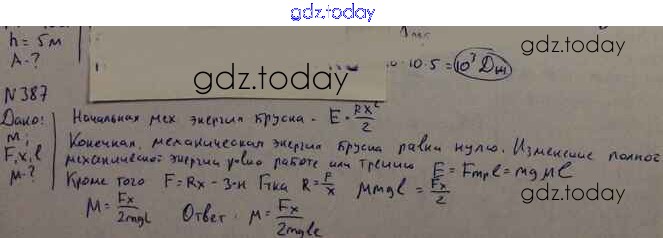 gdz.today
h = 5м
A-?
gdz.today
·10·5 = 10³ Дж
gdz.today
N 387
Дано:
m;
F, x, l
μ-?
Начальная мех. энергия бруска - E = kx²/2
Конечная механическая энергия бруска равна нулю. Изменение полной
механической энергии равно работе или трению E = Fтр l = mgμl
Кроме того F = kx - з-н Гука k = F/x μmgl = Fx/2
μ = Fx/2mgl Ответ: μ = Fx/2mgl
gdz.today